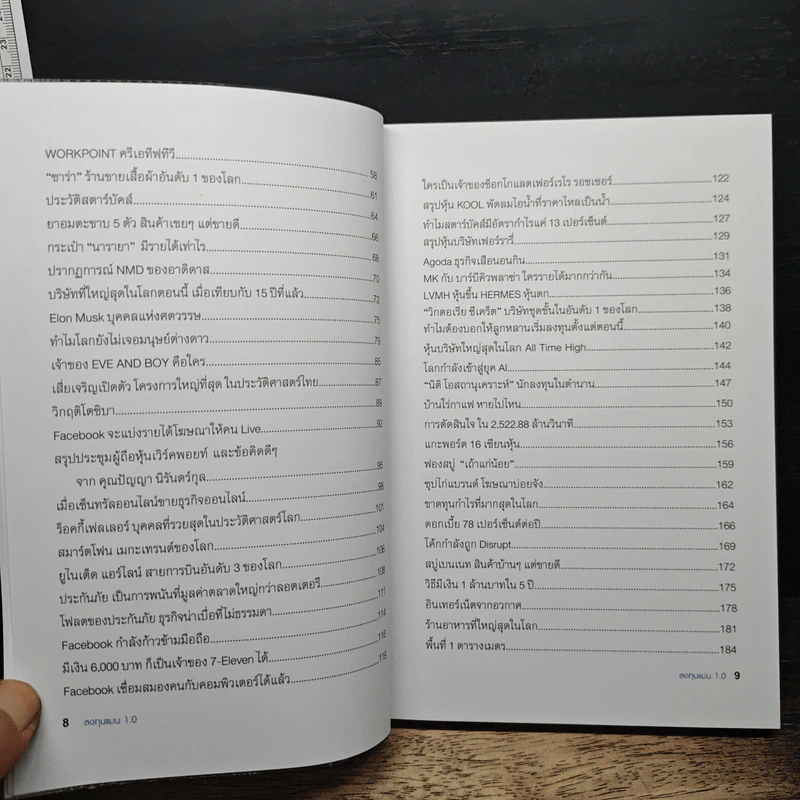 WORKPOINT ครีเอทีฟทีวี 58
"ซาร่า" ร้านขายเสื้อผ้าอันดับ 1 ของโลก 61
ประวัติสตาร์บัคส์ 64
ยาอมตะขาบ 5 ตัว สินค้าเชยๆ แต่ขายดี 66
กระเป๋า "นารายา" มีรายได้เท่าไร 68
ปรากฏการณ์ NMD ของอาดิดาส 70
บริษัทที่ใหญ่สุดในโลกตอนนี้ เมื่อเทียบกับ 15 ปีที่แล้ว 72
Elon Musk บุคคลแห่งศตวรรษ 75
ทำไมโลกยังไม่เจอมนุษย์ต่างดาว 79
เจ้าของ EVE AND BOY คือใคร 85
เสี่ยเจริญเปิดตัว โครงการใหญ่ที่สุด ในประวัติศาสตร์ไทย 87
วิกฤติโตชิบา 89
Facebook จะแบ่งรายได้โฆษณาให้คน Live 92
สรุปประชุมผู้ถือหุ้นเวิร์คพอยท์ และข้อคิดดีๆ
จาก คุณปัญญา นิรันดร์กุล 95
เมื่อเซ็นทรัลออนไลน์ขายธุรกิจออนไลน์ 98
ร็อคกี้เฟลเลอร์ บุคคลที่รวยสุดในประวัติศาสตร์โลก 101
สมาร์ตโฟน เมกะเทรนด์ของโลก 104
ยูไนเต็ด แอร์ไลน์ สายการบินอันดับ 3 ของโลก 106
ประกันภัย เป็นการพนันที่มูลค่าตลาดใหญ่กว่าลอตเตอรี่ 108
โฟลตของประกันภัย ธุรกิจน่าเบื่อที่ไม่ธรรมดา 111
Facebook กำลังก้าวข้ามมือถือ 114
มีเงิน 6,000 บาท ก็เป็นเจ้าของ 7-Eleven ได้ 116
Facebook เชื่อมสมองคนกับคอมพิวเตอร์ได้แล้ว 119
8 ลงทุนแมน 1.0
ใครเป็นเจ้าของช็อกโกแลตเฟอร์เรโร รอชเชอร์ 122
สรุปหุ้น KOOL พัดลมไอน้ำที่ราคาไหลเป็นน้ำ 124
ทำไมสตาร์บัคส์มีอัตรากำไรแค่ 13 เปอร์เซ็นต์ 127
สรุปหุ้นบริษัทเฟอร์รารี่ 129
Agoda ธุรกิจเสือนอนกิน 131
MK กับ บาร์บีคิวพลาซ่า ใครรายได้มากกว่ากัน 134
LVMH หุ้นขึ้น HERMES หุ้นตก 136
"วิกตอเรีย ซีเคร็ต" บริษัทชุดชั้นในอันดับ 1 ของโลก 138
ทำไมต้องบอกให้ลูกหลานเริ่มลงทุนตั้งแต่ตอนนี้ 140
หุ้นบริษัทใหญ่สุดในโลก All Time High 142
โลกกำลังเข้าสู่ยุค AI 144
"นิติ โอสถานุเคราะห์" นักลงทุนในตำนาน 147
บ้านไร่กาแฟ หายไปไหน 150
การตัดสินใจ ใน 2,522.88 ล้านวินาที 153
แกะพอร์ต 16 เซียนหุ้น 156
ฟองสบู่ "เถ้าแก่น้อย" 159
ซุปไก่แบรนด์ โฆษณาบ่อยจัง 162
ขาดทุนกำไรที่มากสุดในโลก 164
ดอกเบี้ย 78 เปอร์เซ็นต์ต่อปี 166
โค้กกำลังถูก Disrupt 169
สบู่เบนเนท สินค้าบ้านๆ แต่ขายดี 172
วิธีมีเงิน 1 ล้านบาทใน 5 ปี 175
อินเทอร์เน็ตจากอวกาศ 178
ร้านอาหารที่ใหญ่สุดในโลก 181
พื้นที่ 1 ตารางเมตร 184
ลงทุนแมน 1.0 9
22
23